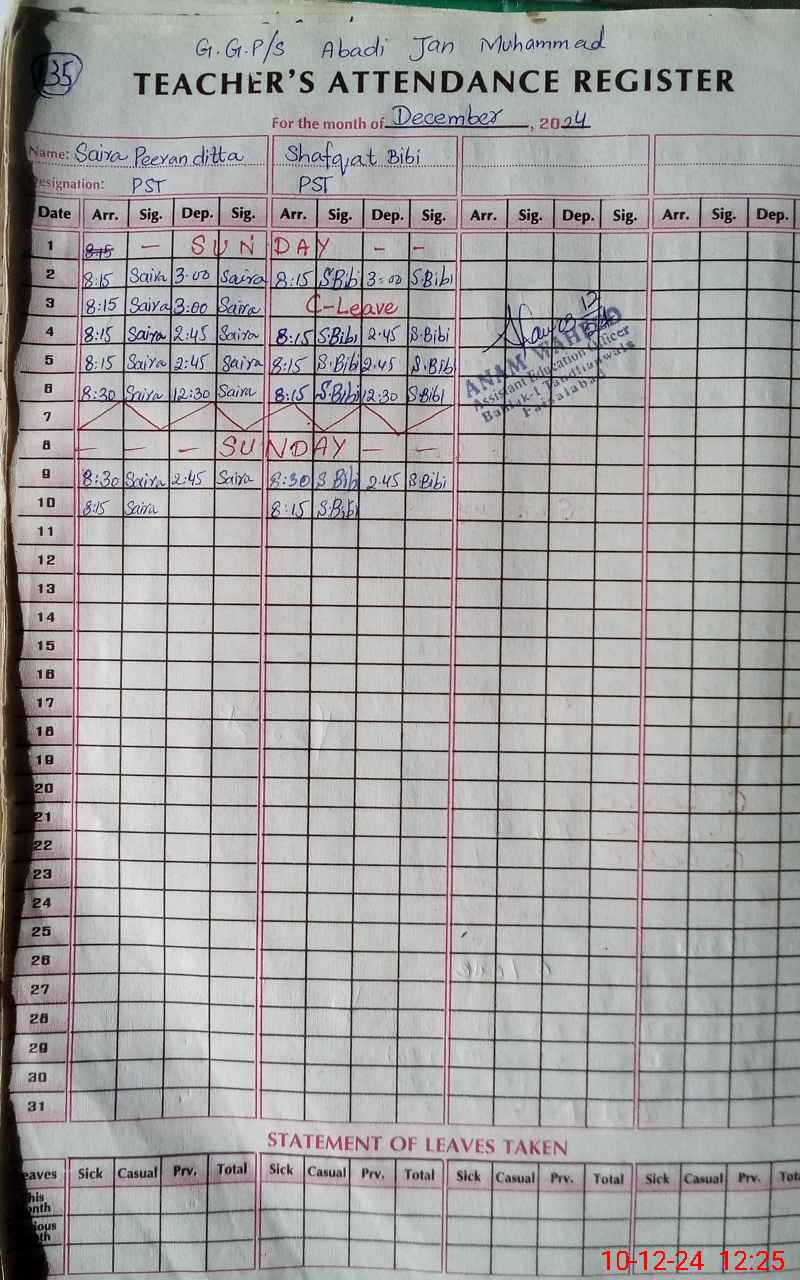 G.G.P/S Abadi Jan Muhammad
135
TEACHER'S ATTENDANCE REGISTER
For the month of December, 2024
Name: Saira Peeranditta Shafqat Bibi
esignation: PST PST
Date Arr. Sig. Dep. Sig. Arr. Sig. Dep. Sig. Arr. Sig. Dep. Sig. Arr. Sig. Dep.
1 8:15 — SUNDAY - -
2 8:15 Saira 3-00 Saira 8:15 S.Bibi 3:00 S.Bibi
3 8:15 Saira 3:00 Saira C-Leave
4 8:15 Saira 2:45 Saira 8:15 S.Bibi 2.45 S.Bibi
5 8:15 Saira 2:45 Saira 8:15 S.Bibi 2.45 S.Bibi
6 8:30 Saira 12:30 Saira 8:15 S.Bibi 12:30 S.Bibi
ANAM WAHEED
Assistant Education Officer
Faisalabad
7
8 — — — SUNDAY — —
9 8:30 Saira 2:45 Saira 8:30 S.Bibi 2.45 S.Bibi
10 8:15 Saira 8:15 S.Bibi
11
12
13
14
15
16
17
18
19
20
21
22
23
24
25
26
27
28
29
30
31
STATEMENT OF LEAVES TAKEN
eaves Sick Casual Prv. Total Sick Casual Prv. Total Sick Casual Prv. Total Sick Casual Prv. Tot
his
nth
ious
th
10-12-24 12:25